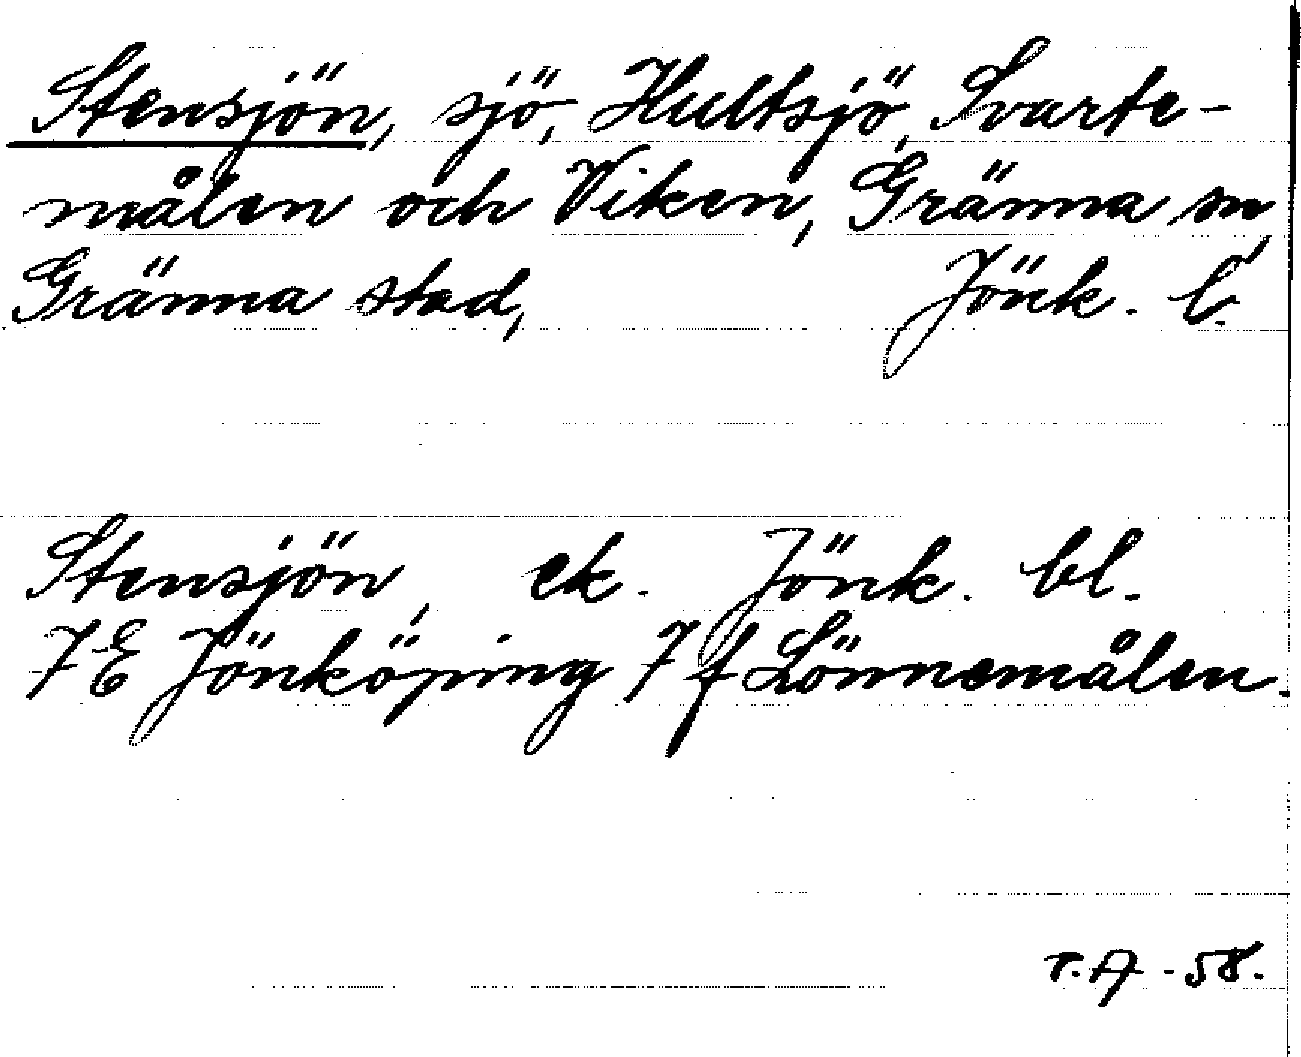 Stensjön, sjö, Hultsjö, Svarte-
målen och Viken, Gränna sn,
Gränna stad, Jönk. l.
Stensjön, ek. Jönk. bl.
7E Jönköping 7 f Lönnemålen.
T.A -58.